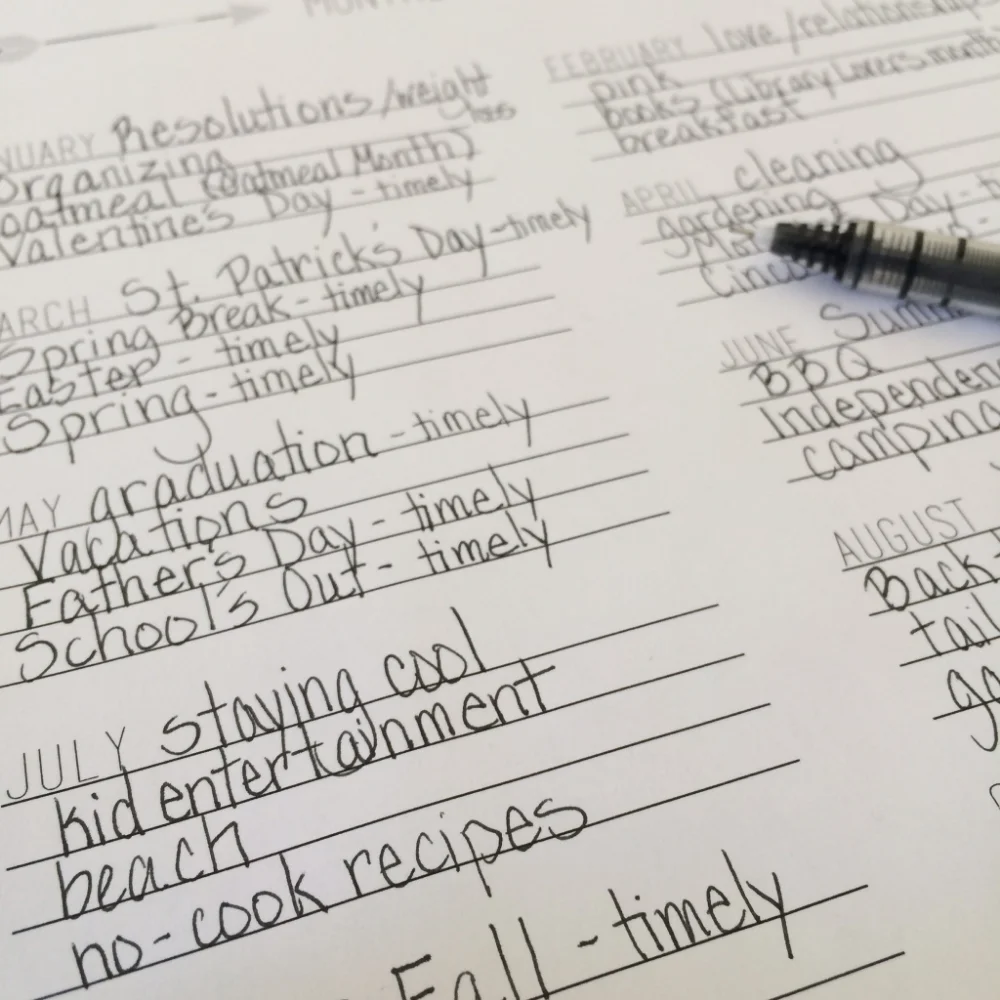 Resolutions/weight
loss
Organizing
oatmeal (Oatmeal Month)
Valentine's Day - timely
FEBRUARY love/relationships
pink
books (Library Lovers month
breakfast
MARCH St. Patrick's Day - timely
Spring Break - timely
Easter - timely
Spring - timely
APRIL cleaning
gardening
Day -
Cinco
MAY graduation - timely
Vacations
Father's Day - timely
School's Out - timely
JUNE
BBQ
camping
JULY staying cool
kid entertainment
beach
no-cook recipes
AUGUST
Back-
Fall - timely